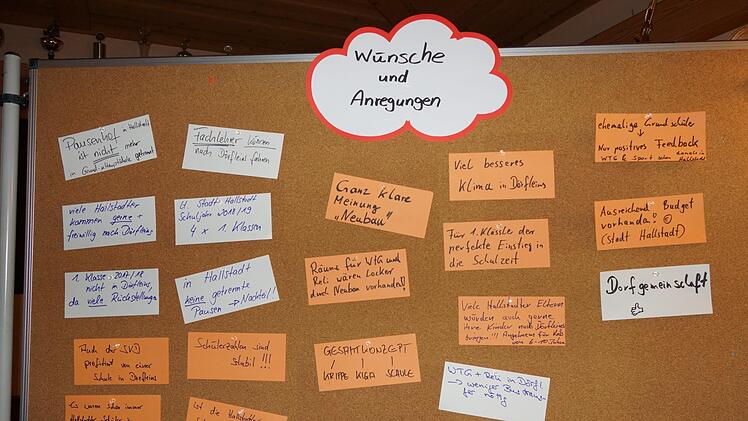 Wünsche
und
Anregungen
Pausenhof in Hallstadt
ist nicht mehr
in Grund- u Hauptschule getrennt
Fachlehrer können
nach Dörfleins fahren
viele Hallstadter
kommen gerne +
freiwillig nach Dörfleins
lt. Stadt Hallstadt
Schuljahr 2018/19
4 x 1. Klassen
1. Klasse 2017/18
nicht in Dörfleins,
da viele Rückstellungen
in Hallstadt
keine getrennte
Pausen → Nachteil!
Auch der SVD
profitiert von einer
Schule in Dörfleins
Schülerzahlen sind
stabil !!!
Es waren schon immer
Hallstadter Schüler
Ist die Hallstadter
Ganz klare
Meinung
"Neubau"
Räume für WTG und
Reli wären locker
durch Neubau vorhanden!
GESAMTKONZEPT
/
KRIPPE KIGA SCHULE
Viel besseres
Klima in Dörfleins
Für 1. Klässler der
perfekte Einstieg in
die Schulzeit
Viele Hallstadter Eltern
würden auch gerne
ihre Kinder nach Dörfleins
bringen!!! Angebote für Kids
von 6-10 Jahren
WTG + Reli in Dörfl.
→ weniger Bus
für nötig
ehemalige Grundschüler
↓
Nur positives Feedback
WTG & Sport schon damals in Hallstadt
Ausreichend Budget
vorhanden! ☺
(Stadt Hallstadt)
Dorfgemeinschaft